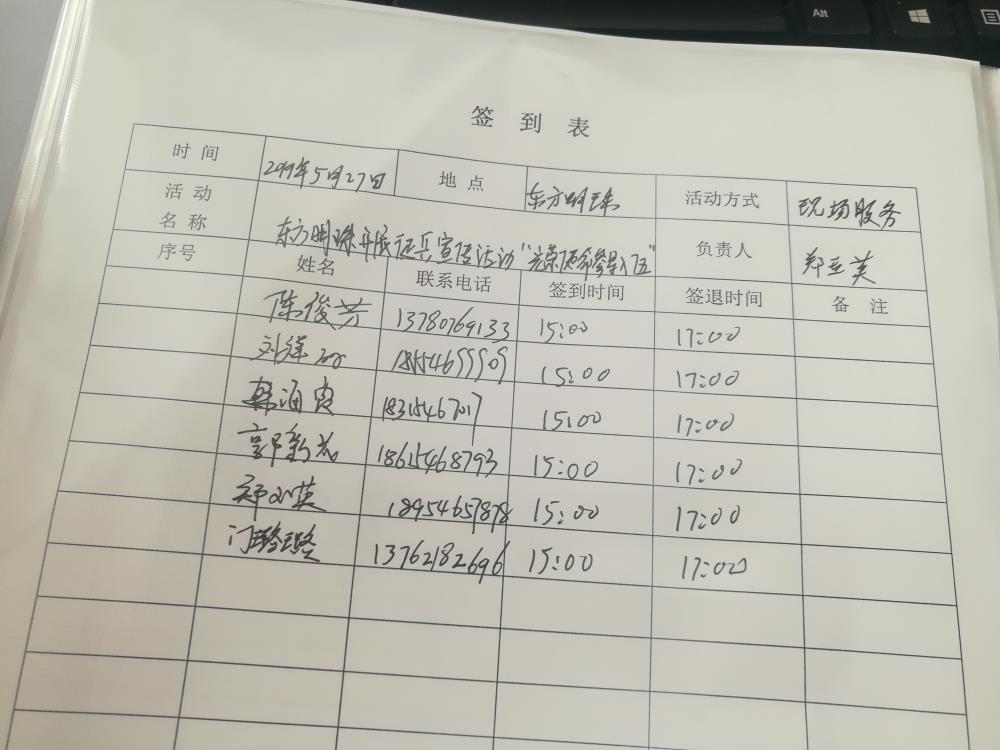 Alt
签 到 表
时 间 2019年5月27日 地 点 东方明珠 活动方式 现场服务
活 动 名 称 东方明珠开展征兵宣传活动“光荣使命参军入伍” 负责人 郑亚芙
序号 姓名 联系电话 签到时间 签退时间 备 注
陈俊芳 13780769133 15:00 17:00
刘洋 15:00 17:00
韩海霞 15:00 17:00
郭新 18615468793 15:00 17:00
郑小英 18954657878 15:00 17:00
门璐璐 13762182696 15:00 17:00